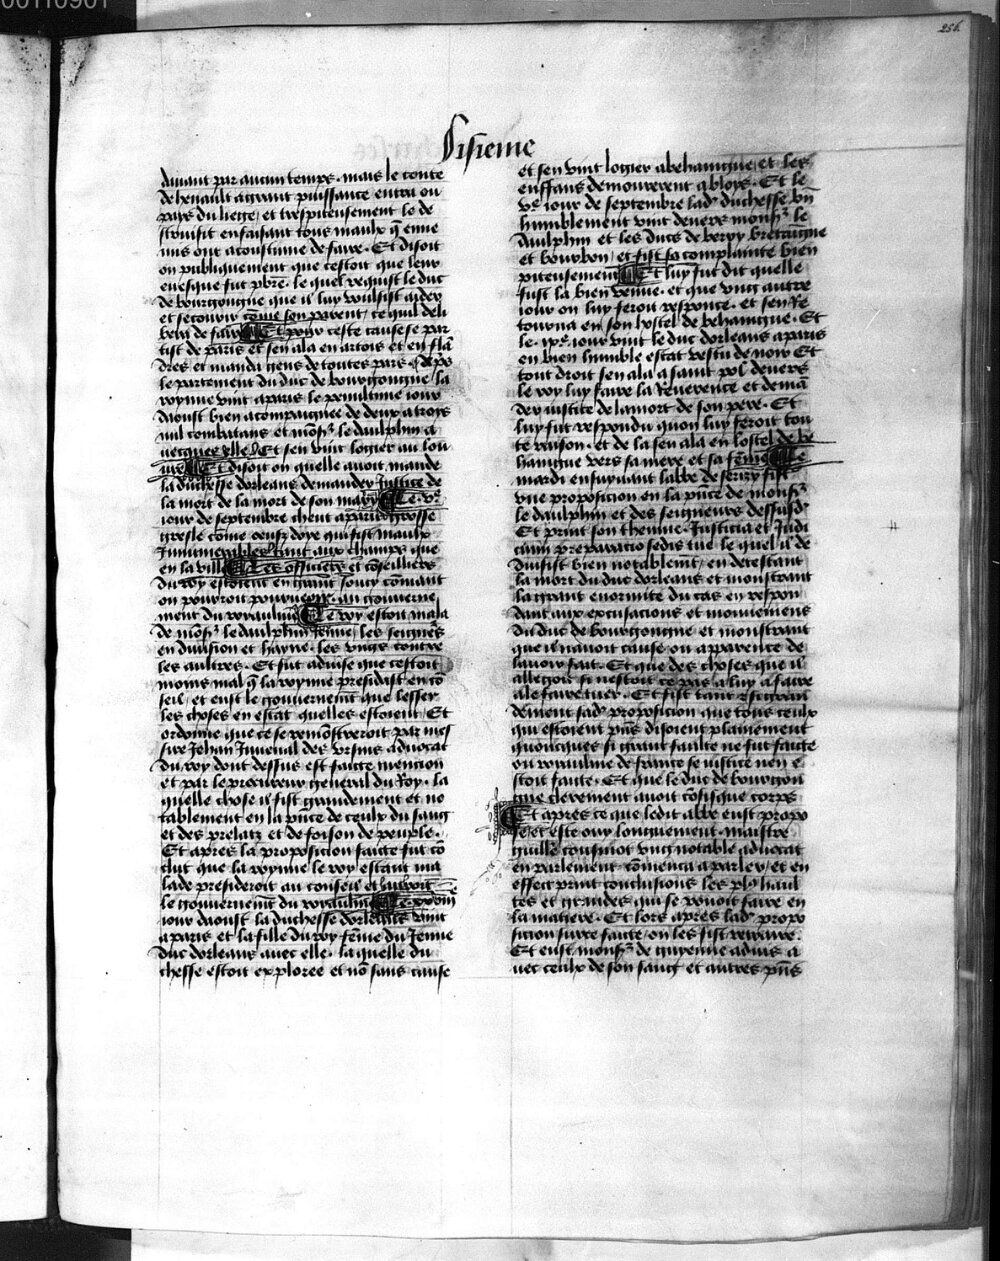 00110901
256
Sisieme
durant par aucun temps. mais le conte
de henault a grant puissance entra ou
pays du liege, et trespiteusement le de
struisit en faisant tous maulx q̄ enne
mis ont acoustume de faire. Et disoit
on publiquement que cestoit que leur
euesque fut pbre. le quel requist le duc
de bourgongne que il luy voulsist aider
et secourir cōme son parent, ce quil deli
bera de faire Et pour ceste cause se par
tist de paris et sen ala en artois et en flā
dres et manda gens de toutes pars. depˢ
le partement du duc de bourgongne la
royne vint a paris le penultime iour
daoust bien acompaignee de deux a troys
mil combatans et mōsʳ le daulphin a
uecques elle. Et sen vint logier au lou
ure Et disoit on quelle auoit mande
la duchesse dorleans demander Justice de
la mort de la mort de son mary Le vᵉ
iour de septembre cheut a paris grosse
gresle cōme oeufz doye qui fist maulx
Jnnumerables tant aux champs que
en la ville Les officiers et cōseilliers
du roy estoient en grant soucy cōmant
on pourroit pourueoir au gouuerne
ment du royaulme Le roy estoit mala
de mōsʳ le daulphin Jenne, les seignrˢ
en diuision et hayne. les vngs contre
les aultres. Et fut aduise que cestoit
moins mal q̄ la royne presidast en cō
seil, et eust le gouuernemt̄ que lesser
les choses en estat quelles estoient, Et
ordonne que ce se remōstreroit par mes
sire Jehan Juuenal des vrsins aduocat
du roy dont dessus est faicte mencion
et par le procureur general du Roy. la
quelle chose il fist grandement et no
tablement en la p̄nce de ceulx du sang
et des prelatz et de foison de peuple.
Et apres la proposicion faicte fut cō
clut que la royne le roy estant ma
lade presideroit au conseil et auroit
le gouuernemt̄ du royaulme
iour daoust la duchesse dorleans vint
a paris et la fille du roy fēme du Jenne
duc dorleans auec elle. laquelle du
chesse estoit exploree et nō sans cause
et sen vint logier a behaingne et les
enffans demourerent a bloys. Et le
vᵉ iour de septembre lad' duchesse bn̄
humblement vint deuers monsʳ le
daulphin et les ducs de berry bretaigne
et bourbon, et fist sa complainte bien
piteusement Et luy fut dit quelle
fust la bien venue. et que vng autre
iour on luy feroit responce. et sen Re
tourna en son hostel de behaingne. Et
le ixᵉ iour vint le duc dorleans a paris
en bien humble estat vestu de noir Et
tout droit sen ala a saint pol deuers
le roy luy faire la Reuerence et demā
der iustice de la mort de son pere. Et
luy fut respondu quon luy feroit tou
te raison. et de la sen ala en lostel de be
haingne vers sa mere et sa fēme Le
mardi ensuyuant labbe de serizy fist
vne proposicion en la p̄nce de monsʳ
le daulphin et des seigneurs dessusd'
Et print son theume. Justicia et Judi
cium preparacio sedis tue le quel il de
duisit bien notablemt̄, en detestant
la mort du duc dorleans et monstrant
la grant enormite du cas en respon
dant aux excusacions et mouuemens
du duc de bourgongne et monstrant
que il nauoit cause ou apparence de
lauoir fait. Et que des choses que il
allegoit si nestoit ce pas a luy a faire
a le faire tuer. Et fist tant
dement sad' proposicion que tous ceulx
qui estoient p̄ns disoient plainement
quoncques si grant faulte ne fut faicte
ou royaulme de france se iustice nen e
stoit faicte. Et que le duc de bourgon
gne clerement auoit cōfisque corps
Et apres ce que ledit abbe eust propo
se et este ouy longuement. maistre
guille cousinot vng notable aduocat
en parlement cōmenca a parler, et en
effect print conclusions les plˢ haul
tes et grandes qui se pouoit faire en
la matiere. Et lors apres lad' propo
sicion faicte on les fist retraire.
Et eust monsʳ de guyenne aduis a
uec ceulx de son sang et autres p̄ns